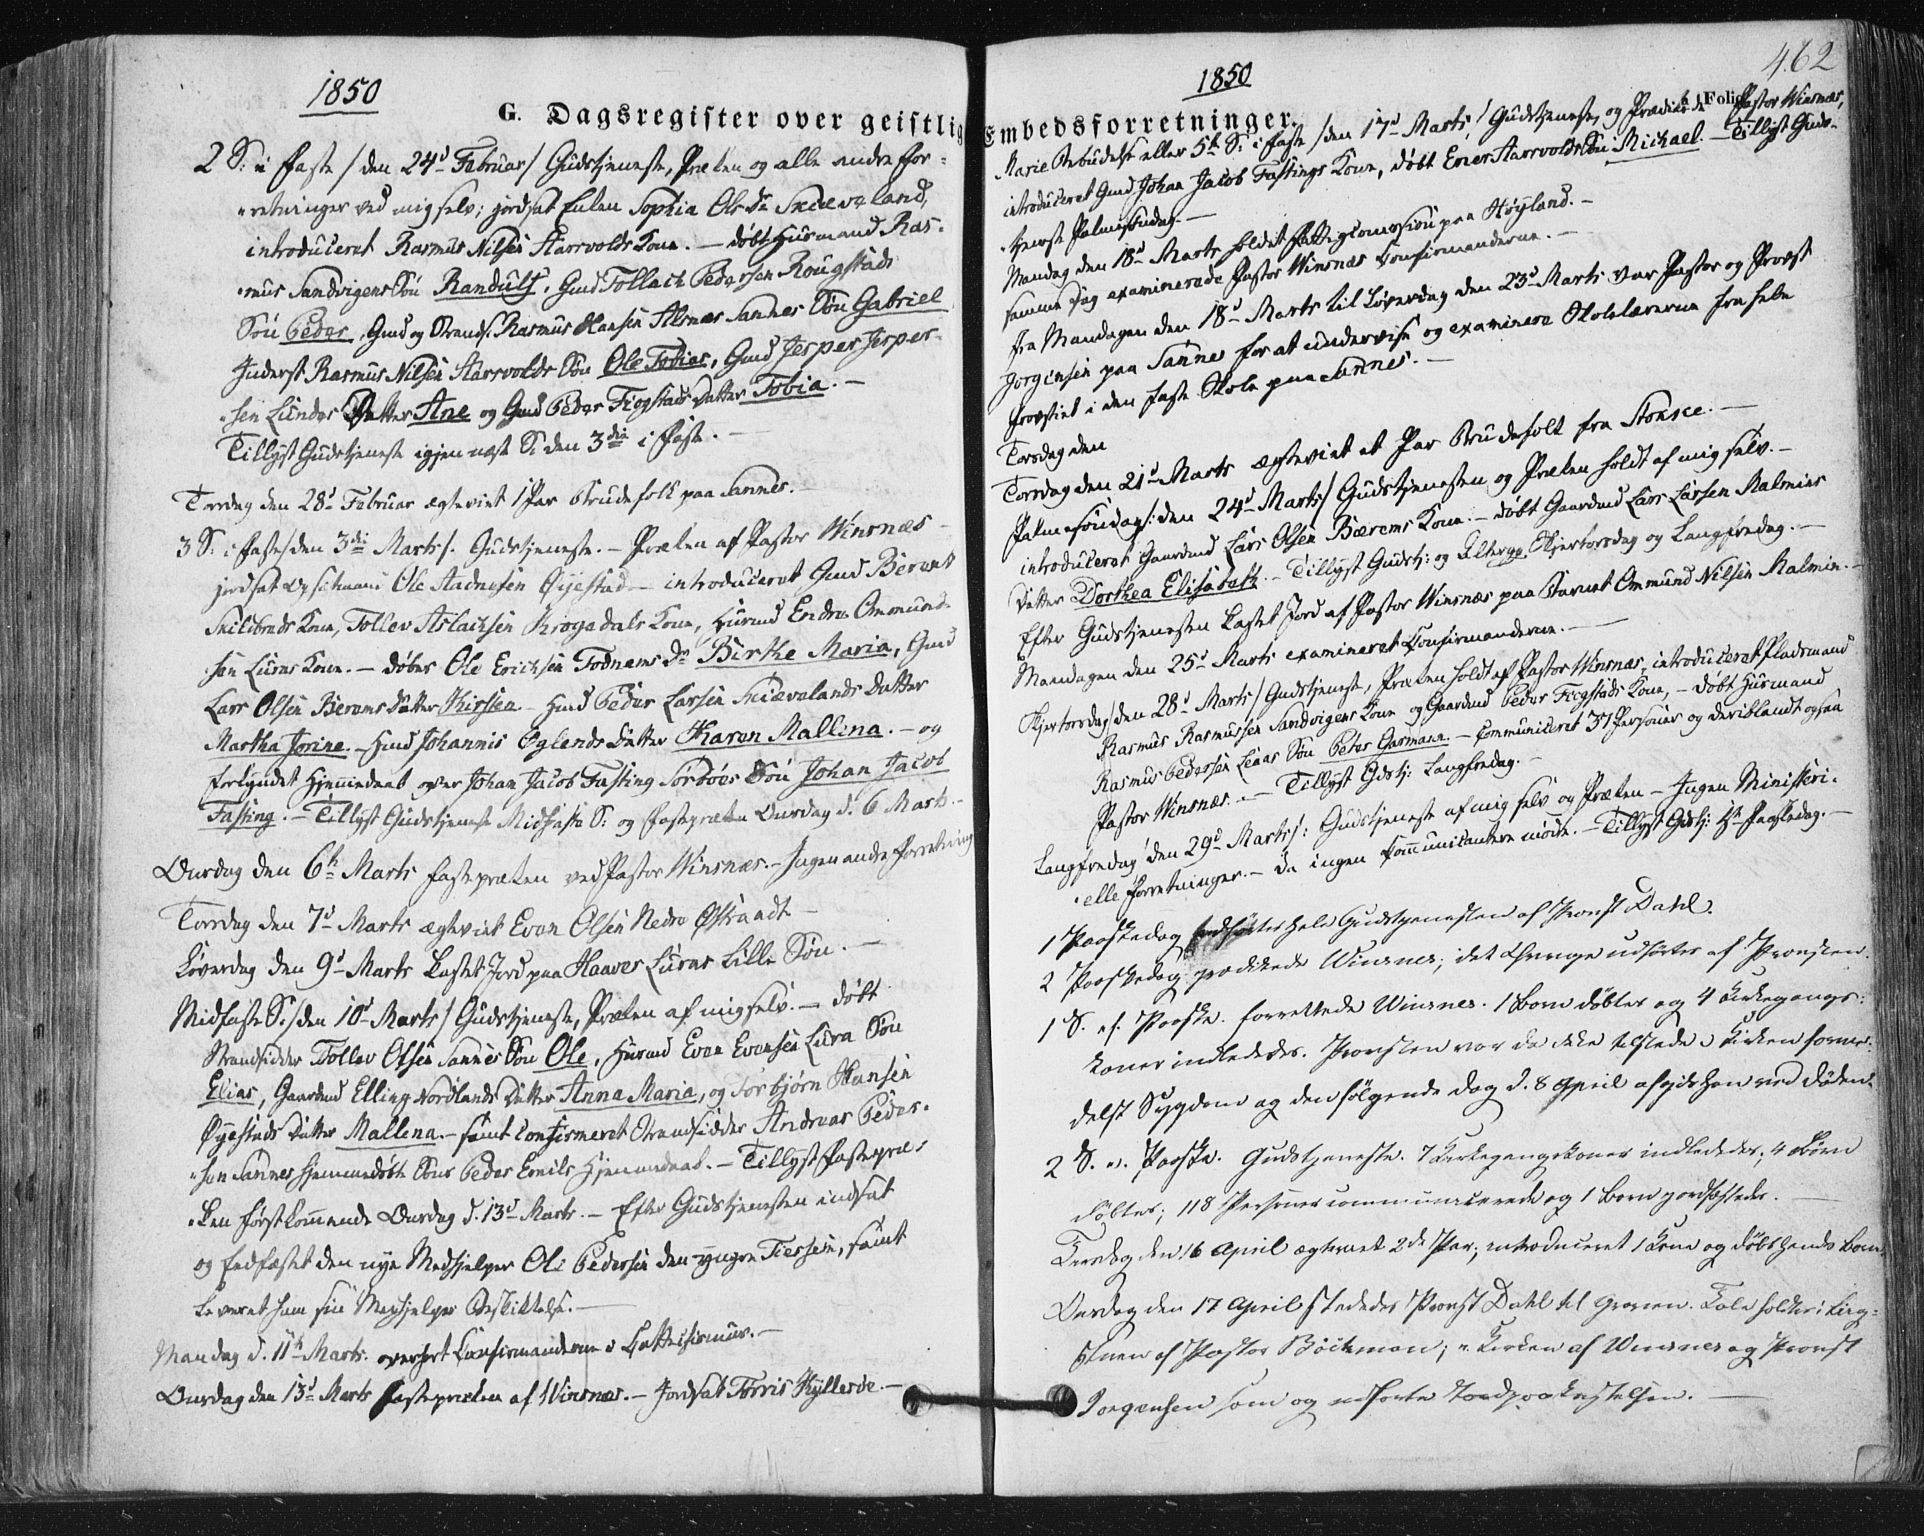 1850
G. Dagsregister over geistlig
2 S: i Faste /den 24d Februar/ Gudstjeneste, Præken og alle andre For-
retninger ved mig selv; jordsat Enken Sophia Ols Dr Skiæveland,
introduceret Rasmus Nilsen Aarvolds Kone. — døbt Husmand Ras-
mus Sandvigens Søn Randulf, Gmd Tollach Pedersen Rougstads
Søn Peder, Gmd og Strands. Rasmus Hansen Alsnæs Sannes Søn Gabriel
Inderst Rasmus Nilsen Aarvolds Søn Ole Tobias, Gmd Jesper Jesper-
sen Lundes Datter Ane og Gmd Peder Fiogstads Datter Tobia. —
Tillyst Gudstjeneste igjen næste S: den 3die i Faste. —
Torsdag den 28d Februar ægteviet 1 Par Brudefolk paa Sannes.
3 S: i Faste /den 3die Marts/. Gudstjeneste. — Præken af Pastor Winsnæs —
jordsat Opsitmand Ole Aadnesen Øyestad — introduceret Gmd Berent
Skilbreds Kone, Tollev Aslachsen Krogedals Kone, Husmd Endre Ommund-
sen Luras Kone. — døbes Ole Erichsen Todnems Dr Birthe Maria, Gmd
Lars Olsen Bærems Datter Kirstea — Hmd Peder Larsen Skiævelands Datter
Martha Jorine. — Hmd Johannis Øglends Datter Karen Mallina. — og
forkyndet Hjemmedaab over Johan Jacob Fasting Sørbøes Søn Johan Jacob
Fasting. — Tillyst Gudstjeneste Midfaste S: og Fastepræken Onsdag d. 6 Marts. —
Onsdag den 6te Marts Fastepræken ved Pastor Winsnæs. — Ingen andre Forretning
Torsdag den 7d Marts ægteviet Even Olsen Nedre Østraadt —
Løverdag den 9d Marts kastet Jord paa Haaver Luras lille Søn. —
Midfaste S: /den 10d Marts/ Gudstjeneste, Præken af mig selv. — døbt
Strandsidder Tollev Olsen Sannes Søn Ole, Husmd Even Evensen Lura Søn
Elias, Gaardmd Elling Nordlands Datter Anna Maria, og Torbjørn Hansen
Øyestads Datter Mallena. — samt confirmeret Strandsidder Andreas Peder-
sen Sannes hjemmedøbte Søns Peder Emils Hjemmedaab. — Tillyst Fastepræ-
ken førstkommende Onsdag d. 13d Marts. — Efter Gudstjenesten indsat
og edfæstet den nye Medhjelper Ole Pedersen den yngre Tiessem, samt
leveret ham sin Medhjelper Beskikkelse. —
Mandag d. 11te Marts. overhørt Confirmanderne i Kattechismus. —
Onsdag den 13d Marts Fastepræken af Winsnæs. — Jordsat Torris Kyllesøe. —
1850
462
Embedsforretninger.
Folio
Marie Bebudelse eller 5te S: i Faste /den 17d Marts/ Gudstjeneste og Prædiken Pastor Winsnæs,
introduceret Gmd Johan Jacob Fastings Kone, døbt Ener Aarvolds Søn Michael. — Tillyst Guds-
tjeneste Palmesøndag. —
Mandag den 18d Marts holdet Fattigcommission paa Høyland. —
samme Dag examinerede Pastor Winsnæs Confirmanderne. —
Fra Mandagen den 18d Marts til Løverdag den 23d Marts var Pastor og Provst
Jørgensen paa Sannes for at undervise og examinere Skolelærerne fra hele
Provstiet i den faste Skole paa Sannes. —
Torsdag den
Torsdag den 21d Marts ægteviet et Par Brudefolk fra Stokke. —
Palmesøndag /: den 24d Marts/ Gudstjenesten og Præken holdt af mig selv. —
introduceret Gaardmd Lars Olsen Bærems Kone. — døbt Gaardmd Lars Larsen Malmins
Datter Dorthea Elisabeth. — Tillyst Gudstj: og Altergg. Skjertorsdag og Langfredag. —
Efter Gudstjenesten kastet Jord af Pastor Winsnæs paa Barnet Ommund Nilsen Malmin. —
Mandagen den 25d Marts examineret Confirmanderne. —
Skjertorsdag /den 28d Marts/ Gudstjeneste, Præken holdt af Pastor Winsnæs, introduceret Pladsmand
Rasmus Rasmussen Sandvigens Kone og Gaardmd Peder Fiogstads Kone, — døbt Husmand
Rasmus Pedersen Leaas Søn Peter Garmann. — Communiceret 37 Personer og deriblandt ogsaa
Pastor Winsnæs. — Tillyst Gdstj: Langfredag. —
Langfredag den 29d Marts/: Gudstjeneste af mig selv og Præken — Ingen Ministeri-
elle Forretninger. — Da ingen Communicantere mødte. — Tillyst Gdstj: 1ste Paaskedag. —
1 Paaskedag hele Gudstjenesten af Provst Dahl.
2 Paaskedag prækede Winsnes; det Øvrige udførtes af Provsten.
1 S. ef. Paaske. forrettede Winsnes. 1 Barn døbtes og 4 Kirkegangs:
koner indlededes. Provsten var da ikke tilstede i Kirken forme-
delst Sygdom og den følgende Dag d. 8 April afgik han ved Døden.
2 S. e. Paaske. Gudstjeneste. 7 Kirkegangskoner indlededes; 4 Børn
døbtes; 118 Personer communicerede og 1 Barn jordfæstedes. —
Tirsdag den 16 April ægteviet 2de Par; introduceret 1 Kone og døbt hendes Barn
Onsdag den 17 April stededes Provst Dahl til Graven. Tale holdtes i Liig-
stuen af Pastor Böckman; i Kirken af Winsnes og Provst
Jørgensen som og udførte Jordpaakastelsen. —